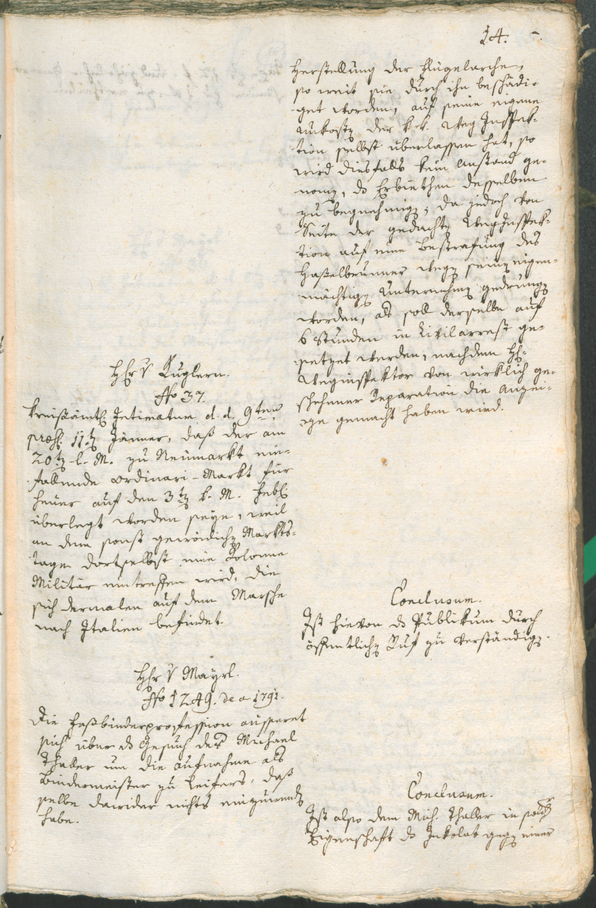 14.
Herstellung der Flügelarchen,
so weit sie durch ihn beschädi-
get worden, auf seine eigene
Unkosten der k. k. Weg Inspek-
tion selbst überlassen hat, so
wird diesfalls kein Anstand ge-
nomen, das Erbiethen desselben
zu begnehmigen; da jedoch von
Seite der gedachten Weginspek-
tion auf eine Bestrafung des
Haselbrunner wegen seines eigen-
mächtigen Unternehmen gedrungen
worden, als soll derselbe auf
6 Stunden in Civilarrest ge-
setzet werden, nachdem H:
Weginspektor von wirklich ge-
schehener Reparation die Anzei-
ge gemacht haben wird.
H: v Kuglern.
No 37.
Kreisämtl. Intimatum d. d. 9ten
praes. 11ten Jänner, daß der am
20ten l. M. zu Neumarkt ein-
fallende ordinari-Markt für
heuer auf den 3ten k. M.
überlegt worden seye, weil
an dem sonst gewönlichen Markts-
tagen dortselbst eine Colonne
Militär eintreffen wird, die
sich dermalen auf dem Marsche
nach Italien befindet.
Conclusum.
Ist hievon das Publikum durch
öffentlichen Ruf zu verständigen.
H: v Mayrl.
No 1249. de a 1791.
Die Faßbinderprofession äusseret
sich über das Gesuch des Michael
Thaler um die Aufnahme als
Bindermeister zu Leifers, daß
selbe dawider nichts einzuwenden
habe.
Conclusum.
Ist also dem Mich. Thaler in solcher
Eigenschaft das Inkolat gegen einer